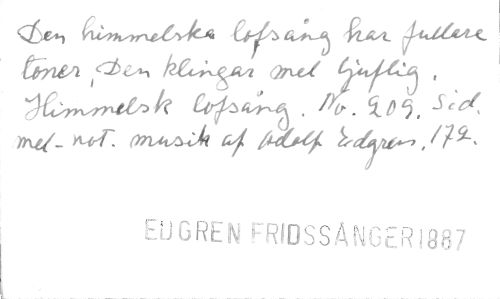 Den himmelska lofsång har fullare
toner, Den klingar mel ljuflig.
Himmelsk lofsång. No. 209. Sid.
mel-not. musik af Adolf Edgren. 172.
EDGREN FRIDSSÅNGER 1887